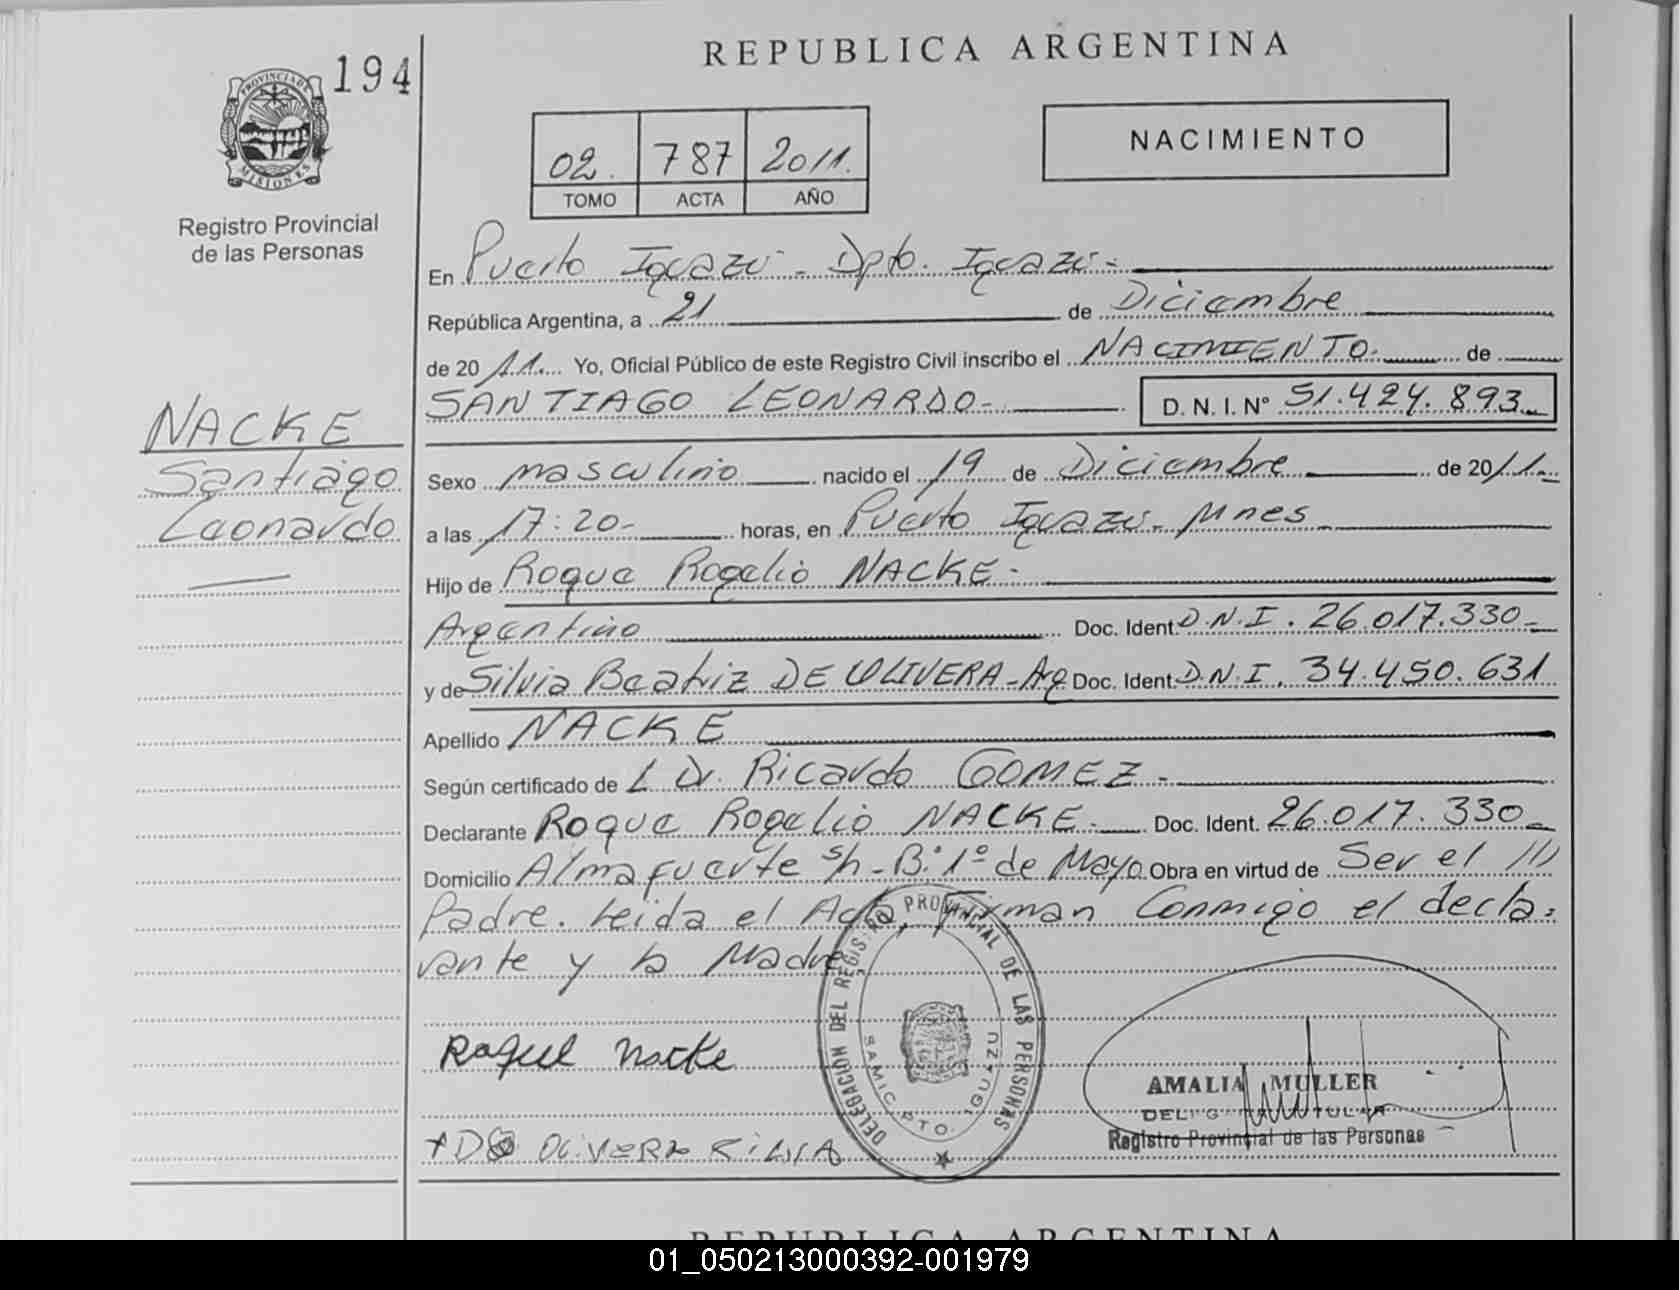 REPUBLICA ARGENTINA
194
PROVINCIA DE MISIONES
Registro Provincial
de las Personas
02. 787 2011.
TOMO ACTA AÑO
NACIMIENTO
En Puerto Iguazú - Dpto. Iguazú -
República Argentina, a 21 de Diciembre
de 2011. Yo, Oficial Público de este Registro Civil inscribo el NACIMIENTO. de
SANTIAGO LEONARDO - D. N. I. Nº 51.424.893
NACKE
Santiago
Leonardo
Sexo masculino nacido el 19 de Diciembre de 2011.
a las 17:20 - horas, en Puerto Iguazú - Mnes
Hijo de Roque Rogelio NACKE -
Argentino Doc. Ident. D.N.I. 26.017.330 -
y de Silvia Beatriz DE OLIVERA - Arg Doc. Ident. D.N.I. 34.450.631
Apellido NACKE
Según certificado de Dr. Ricardo GOMEZ -
Declarante Roque Rogelio NACKE. Doc. Ident. 26.017.330 -
Domicilio Almafuerte s/n - B: 1º de Mayo Obra en virtud de Ser el
Padre. Leida el Acta, Firman Conmigo el decla=
rante y la Madre
DELEGACIÓN DEL REGISTRO PROVINCIAL DE LAS PERSONAS
SAMIC PTO. IGUAZU
Nacke
AMALIA MULLER
Registro Provincial de las Personas
OLIVERA
REPUBLICA ARGENTINA
01_050213000392-001979